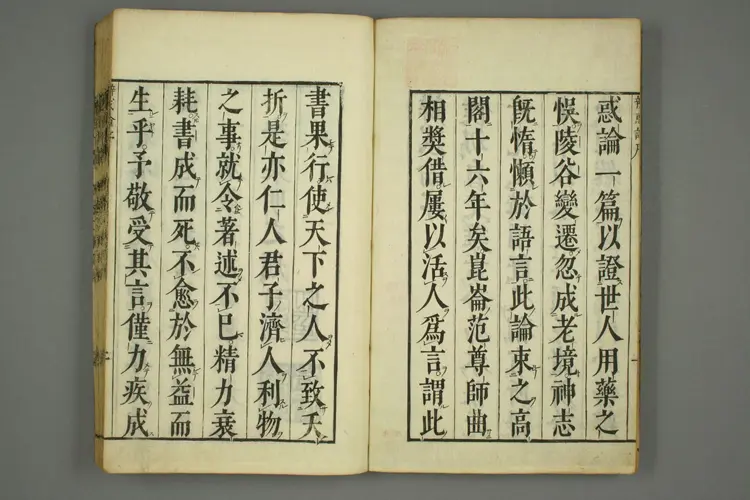 惑論一篇以證世人用藥之
悞陵谷變遷忽成老境神志
旣惰懶於語言此論束之高
閣十六年矣崑崙范尊師曲
相奬借屢以活人爲言謂此
書果行使天下之人不致夭
折是亦仁人君子濟人利物
之事就令著述不已精力衰
耗書成而死不愈於無益而
生乎予敬受其言僅力疾成